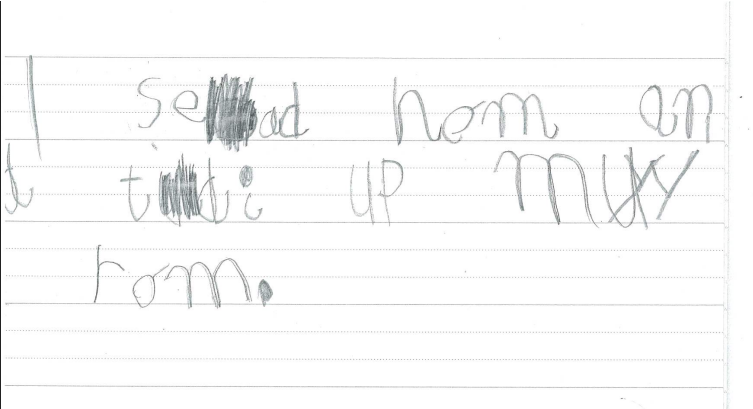 I sead hom an
t tidi up my
rom.